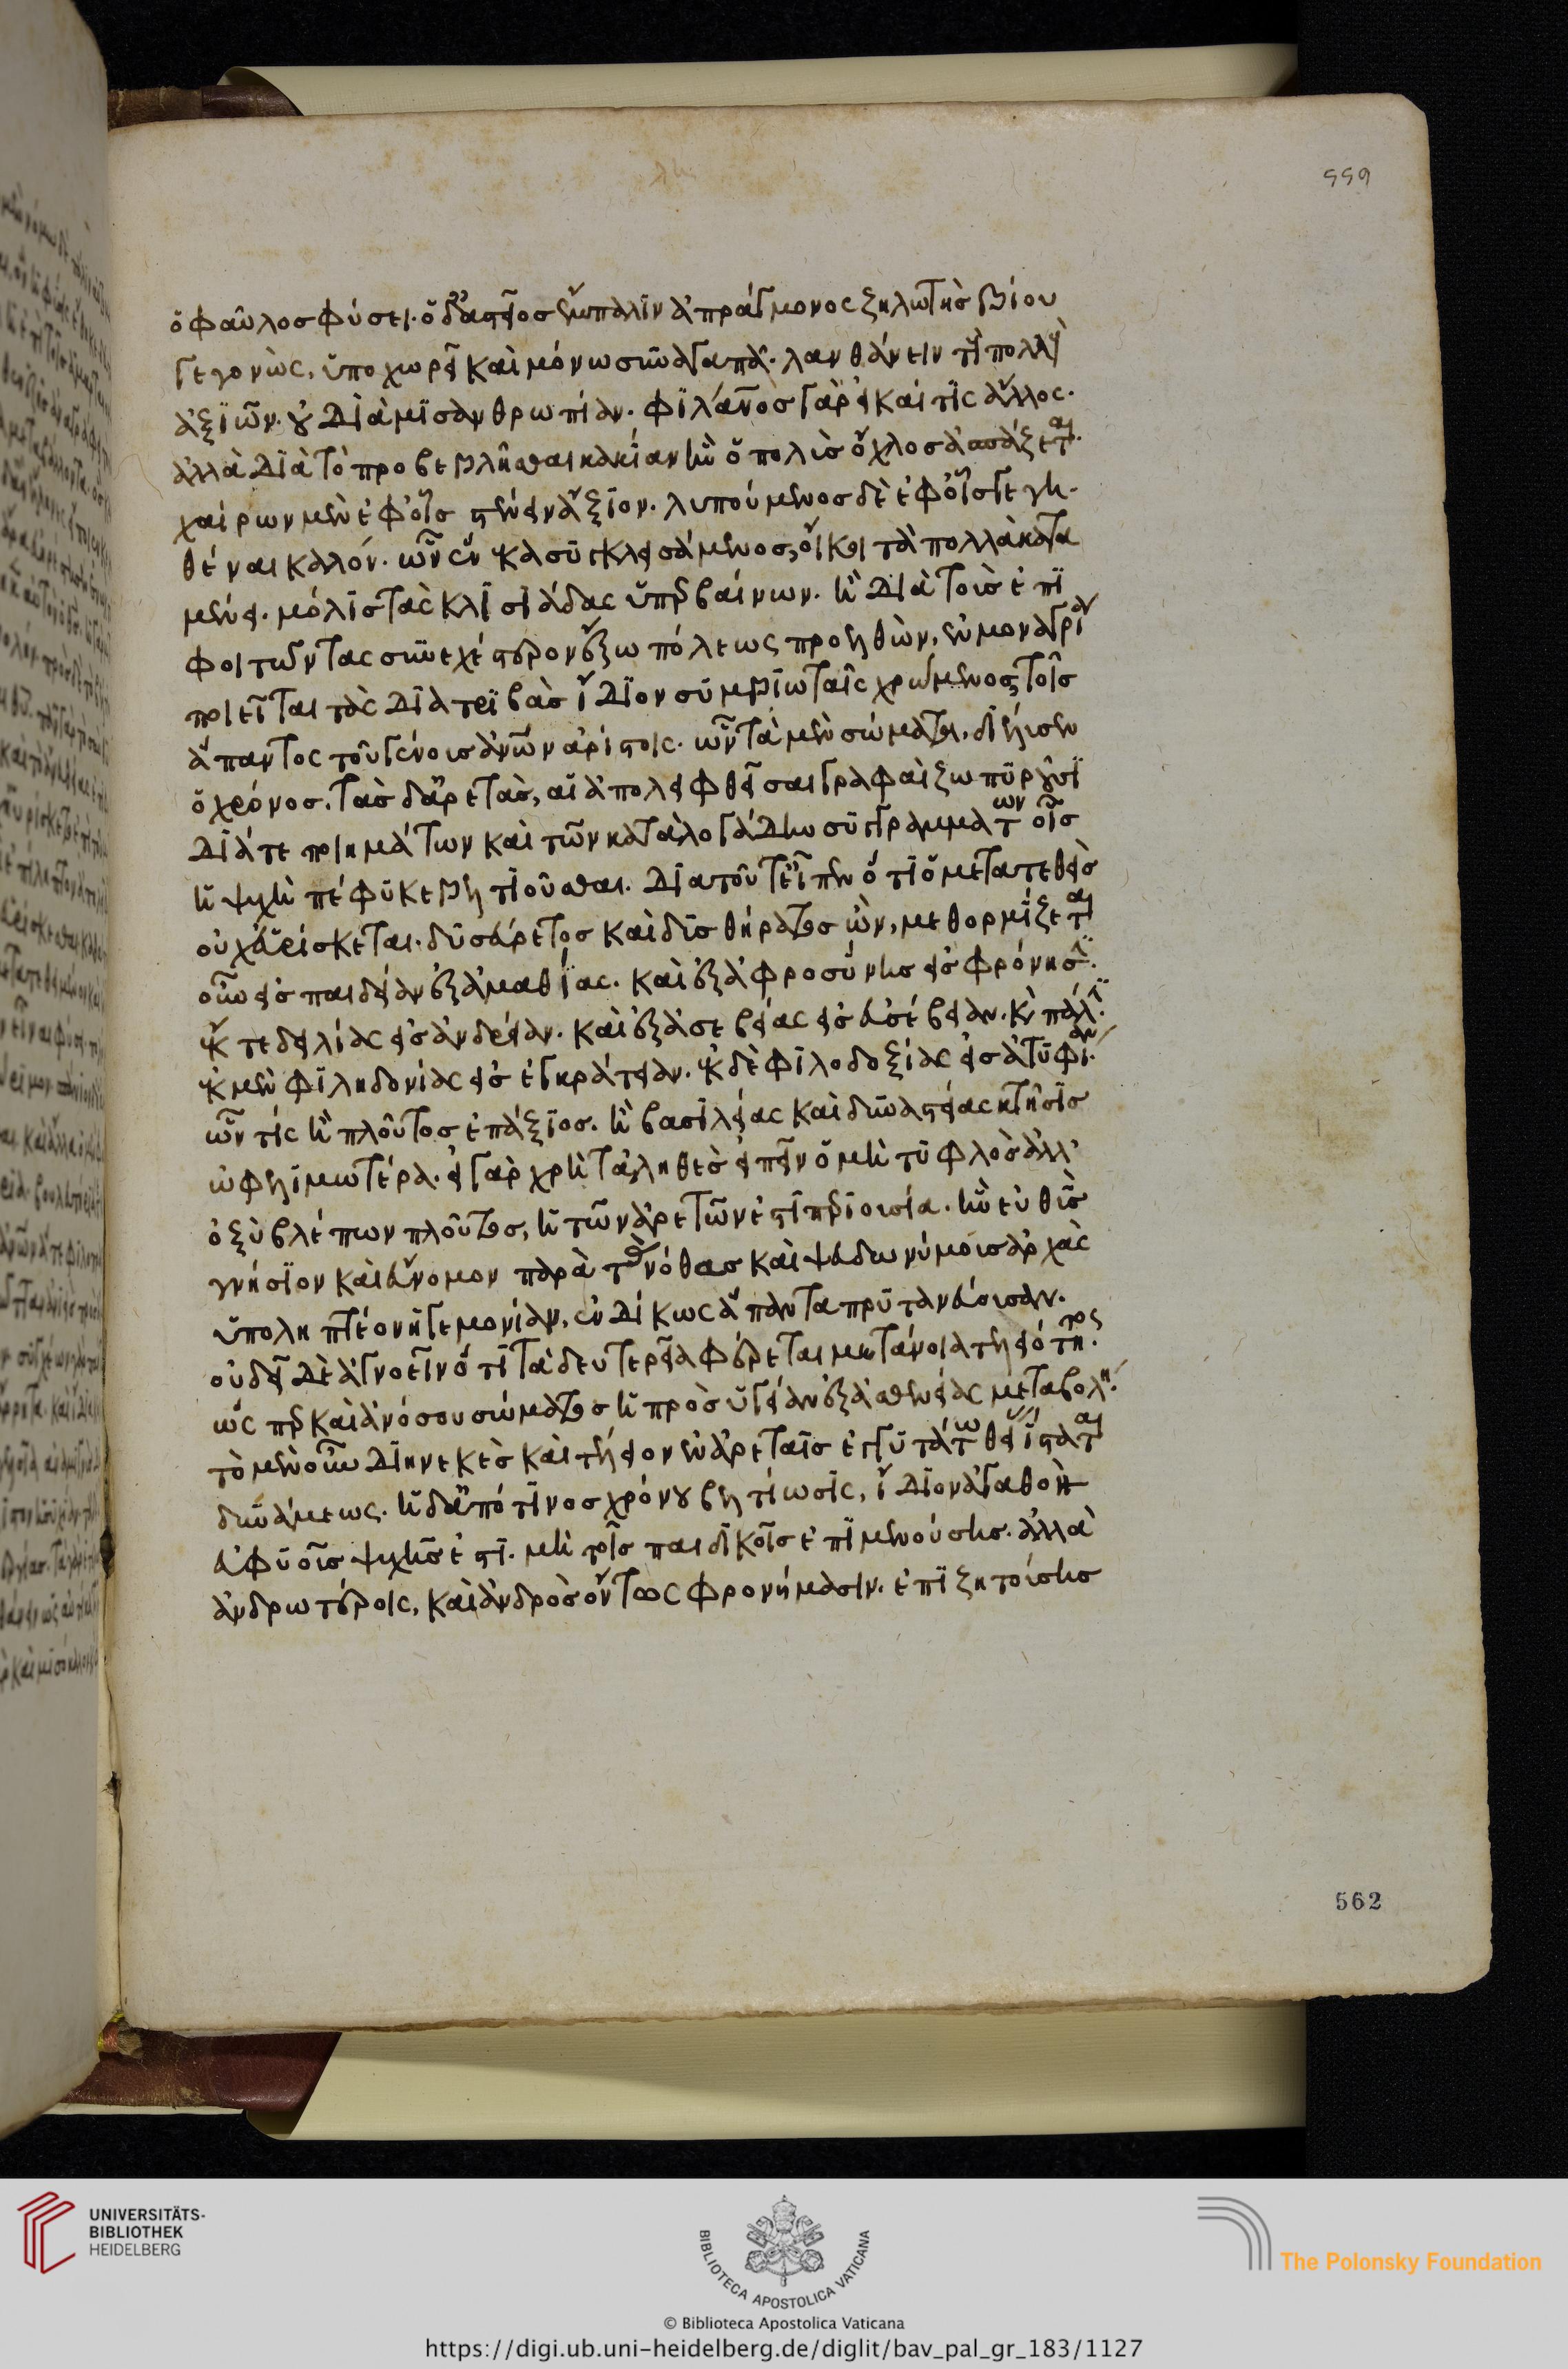 559
ὁ φαῦλος φύσει. ὁ δ' ἀστεῖος ἔμπαλιν ἀπράγμονος ζηλωτὴς βίου
γεγονὼς, ὑποχωρεῖ καὶ μόνωσιν ἀγαπᾶ. λανθάνειν τοὺς πολλοὺς
ἀξιῶν. οὐ διὰ μισανθρωπίαν. φιλάνθρωπος γὰρ εἰ καί τις ἄλλος.
ἀλλὰ διὰ τὸ προβεβλῆσθαι κακίαν ἣν ὁ πολὺς ὄχλος ἀσπάζεται.
χαίρων μὲν ἐφ' οἷς στένειν ἄξιον. λυπούμενος δὲ ἐφ' οἷς γεγη
θέναι καλόν. ὧν ἕνεκα συγκλεισάμενος, οἴκοι τὰ πολλὰ κατα
μένει. μόλις τὰς κλισιάδας ὑπερβαίνων. ἢ διὰ τοὺς ἐπι
φοιτῶντας συνεχέστερον ἔξω πόλεως προελθὼν, ἐν μοναγρίᾳ
ποιεῖται τὰς διατριβὰς ἴδιον συμβιωταῖς χρώμενος τοῖς
ἅπαντος τοῦ γένους ἀνθρώπων ἀρίστοις. ὧν τὰ μὲν σώματα, διέλυσεν
ὁ χρόνος. τὰς δ' ἀρετὰς, αἱ ἀπολειφθεῖσαι γραφαὶ ζωπυροῦσι
διά τε ποιημάτων καὶ τῶν καταλογάδην συγγραμμάτων οἷς
ἡ ψυχὴ πέφυκε βελτιοῦσθαι. διὰ τοῦτ' εἶπεν ὅτι ὁ μετατεθεὶς
οὐχ εὑρίσκεται. δυσεύρετος καὶ δυσθήρατος ὢν, μεθορμίζεται
οὖν εἰς παιδείαν ἐξ ἀμαθίας. καὶ ἐξ ἀφροσύνης εἰς φρόνησιν.
ἔκ τε δειλίας εἰς ἀνδρείαν. καὶ ἐξ ἀσεβείας εἰς εὐσέβειαν. καὶ πάλιν.
ἐκ μὲν φιληδονίας εἰς ἐγκράτειαν. ἐκ δὲ φιλοδοξίας εἰς ἀτυφίαν.
ὧν τίς ἢ πλοῦτος ἐπάξιος. ἢ βασιλείας καὶ δυναστείας κτῆσις
ὠφελιμωτέρα. εἰ γὰρ χρὴ τἀληθὲς εἰπεῖν ὁ μὴ τυφλὸς ἀλλ'
ὀξὺ βλέπων πλοῦτος, ἡ τῶν ἀρετῶν ἐστὶ περιουσία. ἣν εὐθὺς
γνήσιον καὶ εὔνομον παρὰ τὰς νόθας καὶ ψευδωνύμους ἀρχὰς
ὑποληπτέον ἡγεμονίαν, ἐνδίκως ἅπαντα πρυτανεύουσαν.
οὐ δεῖ δὲ ἀγνοεῖν ὅτι τὰ δευτερεῖα φέρεται μετάνοια τελειότητος.
ὥσπερ καὶ ἀνόσου σώματος ἡ πρὸς ὑγείαν ἐξ ἀσθενείας μεταβολή.
τὸ μὲν οὖν διηνεκὲς καὶ τέλειον ἐν ἀρεταῖς ἐγγυτάτω θεί ἵσταται
δυνάμεως. ἡ δ' ἀπό τινος χρόνου βελτίωσις, ἴδιον ἀγαθὸν
εὐφυοῦς ψυχῆς ἐστι. μὴ τοῖς παιδικοῖς ἐπιμενούσης. ἀλλὰ
ἀνδρωτέροις, καὶ ἀνδρὸς ὄντως φρονήμασιν. ἐπιζητούσης
562
UNIVERSITÄTS-
BIBLIOTHEK
HEIDELBERG
BIBLIOTECA APOSTOLICA VATICANA
The Polonsky Foundation
© Biblioteca Apostolica Vaticana
https://digi.ub.uni-heidelberg.de/diglit/bav_pal_gr_183/1127